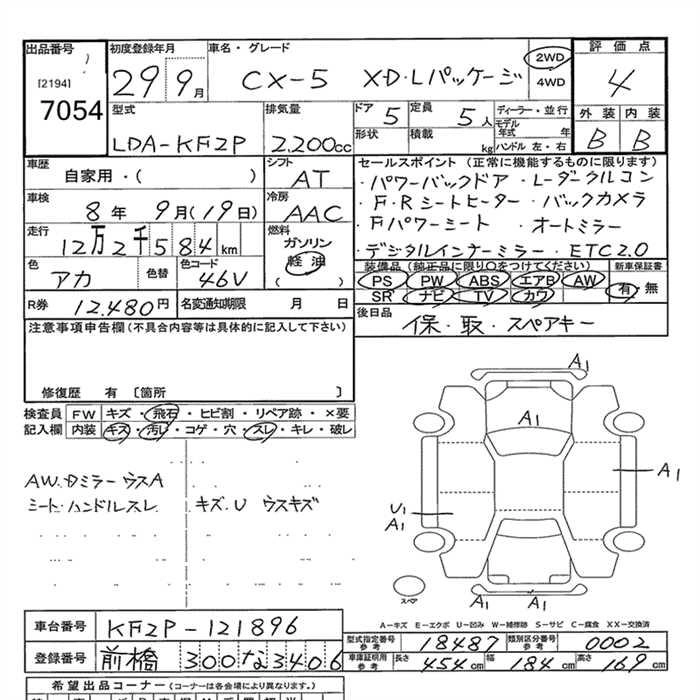 出品番号 初度登録年月 車名・グレード 評価点
[2194] 29 9月 CX-5 XD・Lパッケージ 2WD 4
7054 4WD
型式 排気量 ドア 5 定員 5人 ディーラー・並行 外装 内装
LDA-KF2P 2.200cc 形状 積載 kg モデル年式 年 ハンドル 左・右 B B
車歴 シフト セールスポイント(正常に機能するものに限ります)
自家用・( ) AT ・パワーバックドア・レーダークルコン
車検 冷房 ・F・Rシートヒーター・バックカメラ
8年 9月(19日) AAC ・Fパワーシート ・オートミラー
走行 燃料 ・デジタルインナーミラー・ETC2.0
12万2千584km ガソリン
色 色替 色コード 軽油 装備品(純正品に限り○をつけてください) 新車保証書
アカ 46V ( ) PS PW ABS エアB AW 有・無
R券 12.480円 名変通知期限 月 日 SR ナビ TV カワ
注意事項申告欄(不具合内容等は具体的に記入して下さい) 後日品
保・取・スペアキー
修復歴 有 〔箇所 〕
検査員 FW キズ・飛石・ヒビ割・リペア跡・×要
記入欄 内装 キズ・汚レ・コゲ・穴・スレ・キレ・破レ
A1
A1
AW.Dミラー ウスA
A1
シート・ハンドルスレ キズ.U ウスキズ
U1
A1
スペア
A1 A1
A-キズ E-エクボ U-凹み W-補修跡 S-サビ C-腐食 XX-交換済
車台番号 KF2P-121896
型式指定番号 参考 18487 類別区分番号 参考 0002
登録番号 前橋 300な3406
車庫証明用 参考 長さ 454cm 幅 184cm 高さ 169cm
希望出品コーナー(コーナーは各会場により異なります。)